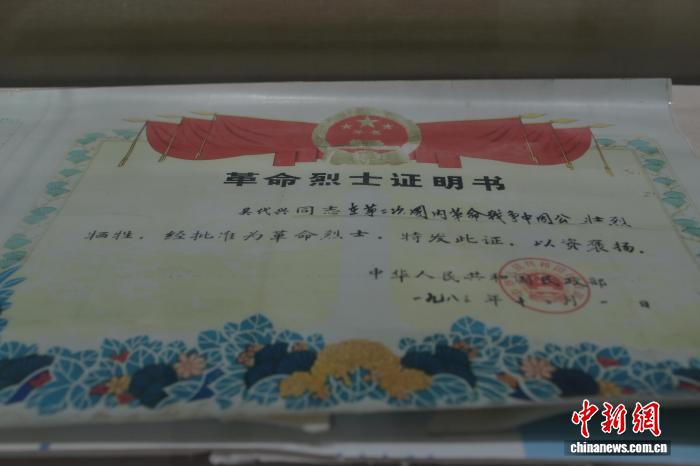 革命烈士证明书
吴代兴同志在第二次国内革命战争中因公壮烈
牺牲，经批准为革命烈士，特发此证，以资褒扬。
中华人民共和国民政部
一九八三年十一月一日
中新网
www.
chinanews.com